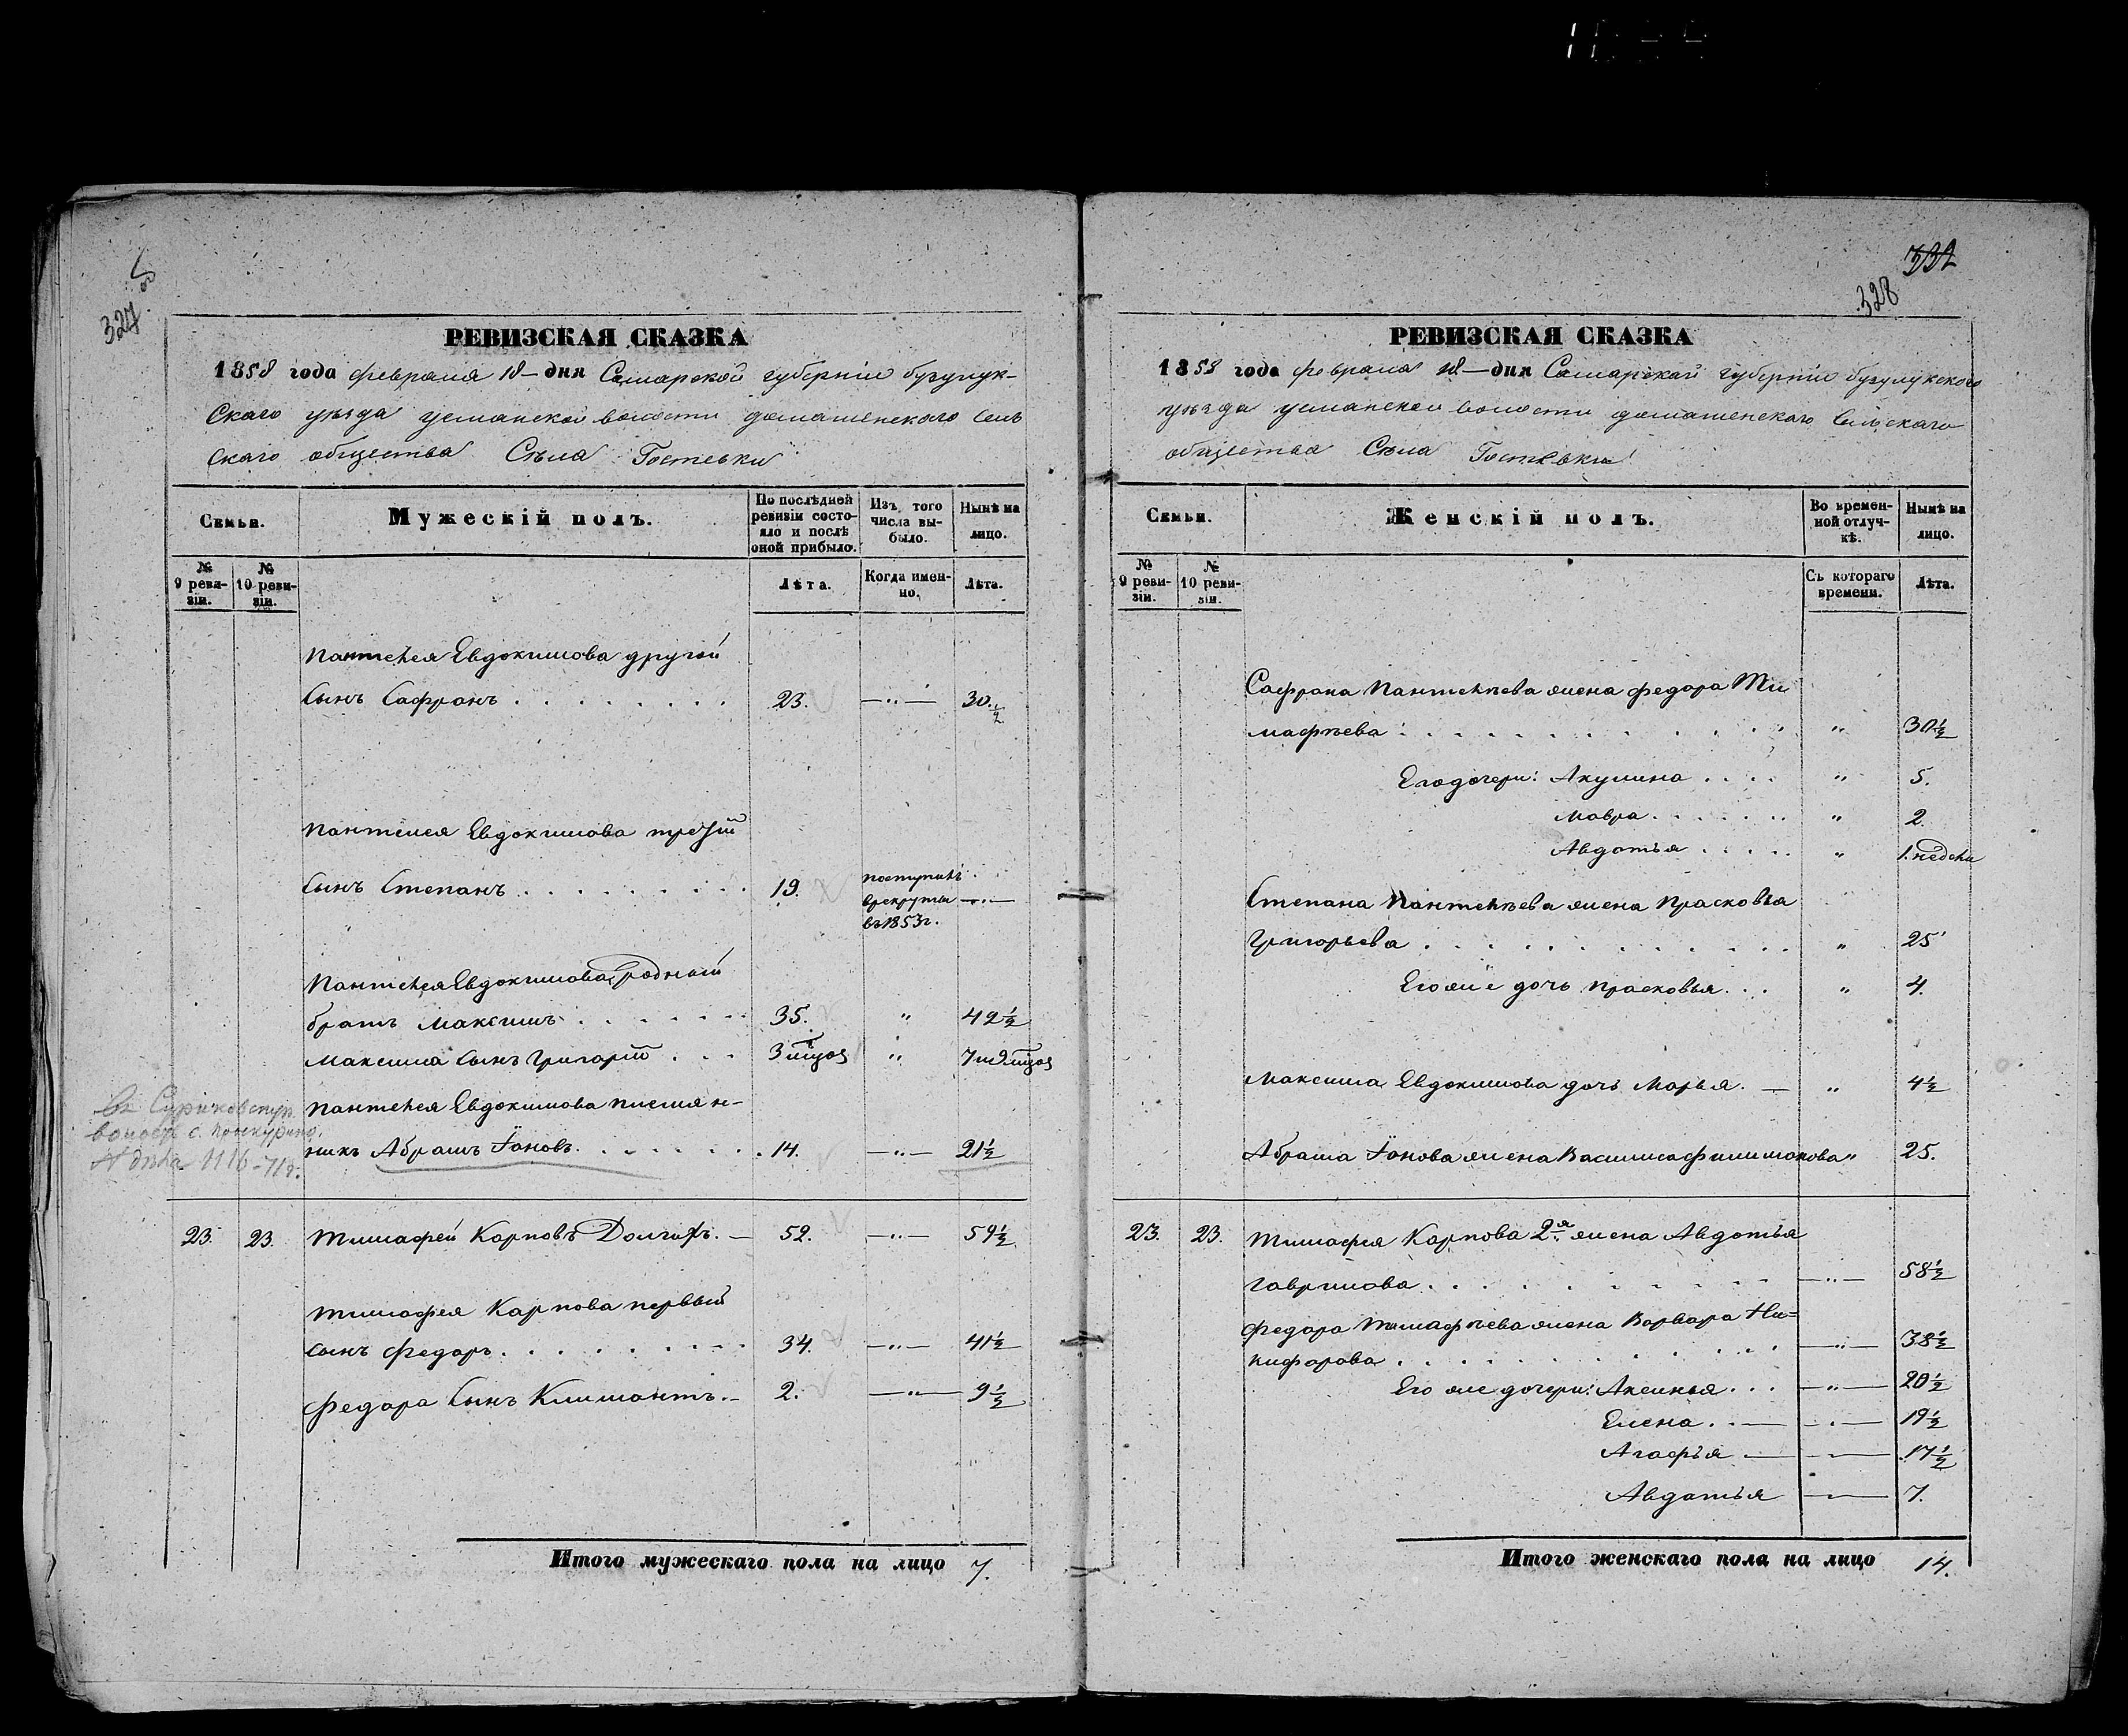 327
РЕВИЗСКАЯ СКАЗКА
1858 года февраля 18 — дня Самарской губерніи бузулук-
скаго уѣзда усманской волости домашенскаго сель
скаго общества Сѣла Гостевки
Семьи.
Мужескій полъ.
По послѣдней ревизіи состояло и послѣ оной прибыло.
Изъ того числа выбыло.
Нынѣ на лицо.
№ 9 ревизіи.
№ 10 ревизіи.
Лѣта.
Когда именно.
Лѣта.
Пантелея Евдокимова другой
сынъ Сафронъ 23. — „ — 30 ½
Пантелея Евдокимова третій
сынъ Степанъ 19. поступилъ врекруты въ 1853 г. — „ —
Пантелея Евдокимова родной
братъ Максимъ 35. „ 42 ½
Максима сынъ Григорій 3 мѣцов „ 7 и 9 мѣцов
Пантелея Евдокимова племян-
никъ Абрамъ Іоновъ 14. — „ — 21 ½
волость с.
№ дѣла 1116-71 г.
23. 23. Тимафей Карповъ 52. — „ — 59 ½
Тимафея Карпова первый
сынъ Федаръ 34. — „ — 41 ½
Федара сынъ Климантъ. — 2. — „ — 9 ½
Итого мужескаго пола на лицо 7.
332
328
РЕВИЗСКАЯ СКАЗКА
1858 года февраля 18 — дня Самарской губерніи бузулукскаго
уѣзда усманской волости домашенскаго сельскаго
общества Сѣла Гостевки
Семьи.
Женскій полъ.
Во временной отлучкѣ.
Нынѣ на лицо.
№ 9 ревизіи.
№ 10 ревизіи.
Съ котораго времени.
Лѣта.
Сафрона Пантелѣева жена федора Ти
мафѣева „ 30 ½
Его дочери: Акулина „ 5.
Мавра „ 2
Авдотья „ 1. недели
Степана Пантелѣева жена Прасковья
Григорьева „ 25
Его же дочь Прасковья „ 4.
Максима Евдокимова дочь Марья. — „ 4 ½
Абрама Іонова жена Василиса филимонова „ 25.
23. 23. Тимафея Карпова 2я жена Авдотья
гаврилова — „ — 58 ½
Федара Тимафѣева жена Варвара Ни=
кифарова — „ — 38 ½
Его же дочери: Аксинья — „ — 20 ½
Елена. — — „ — 19 ½
Агафья — — 17 ½
Авдатья — 7.
Итого женскаго пола на лицо 14.